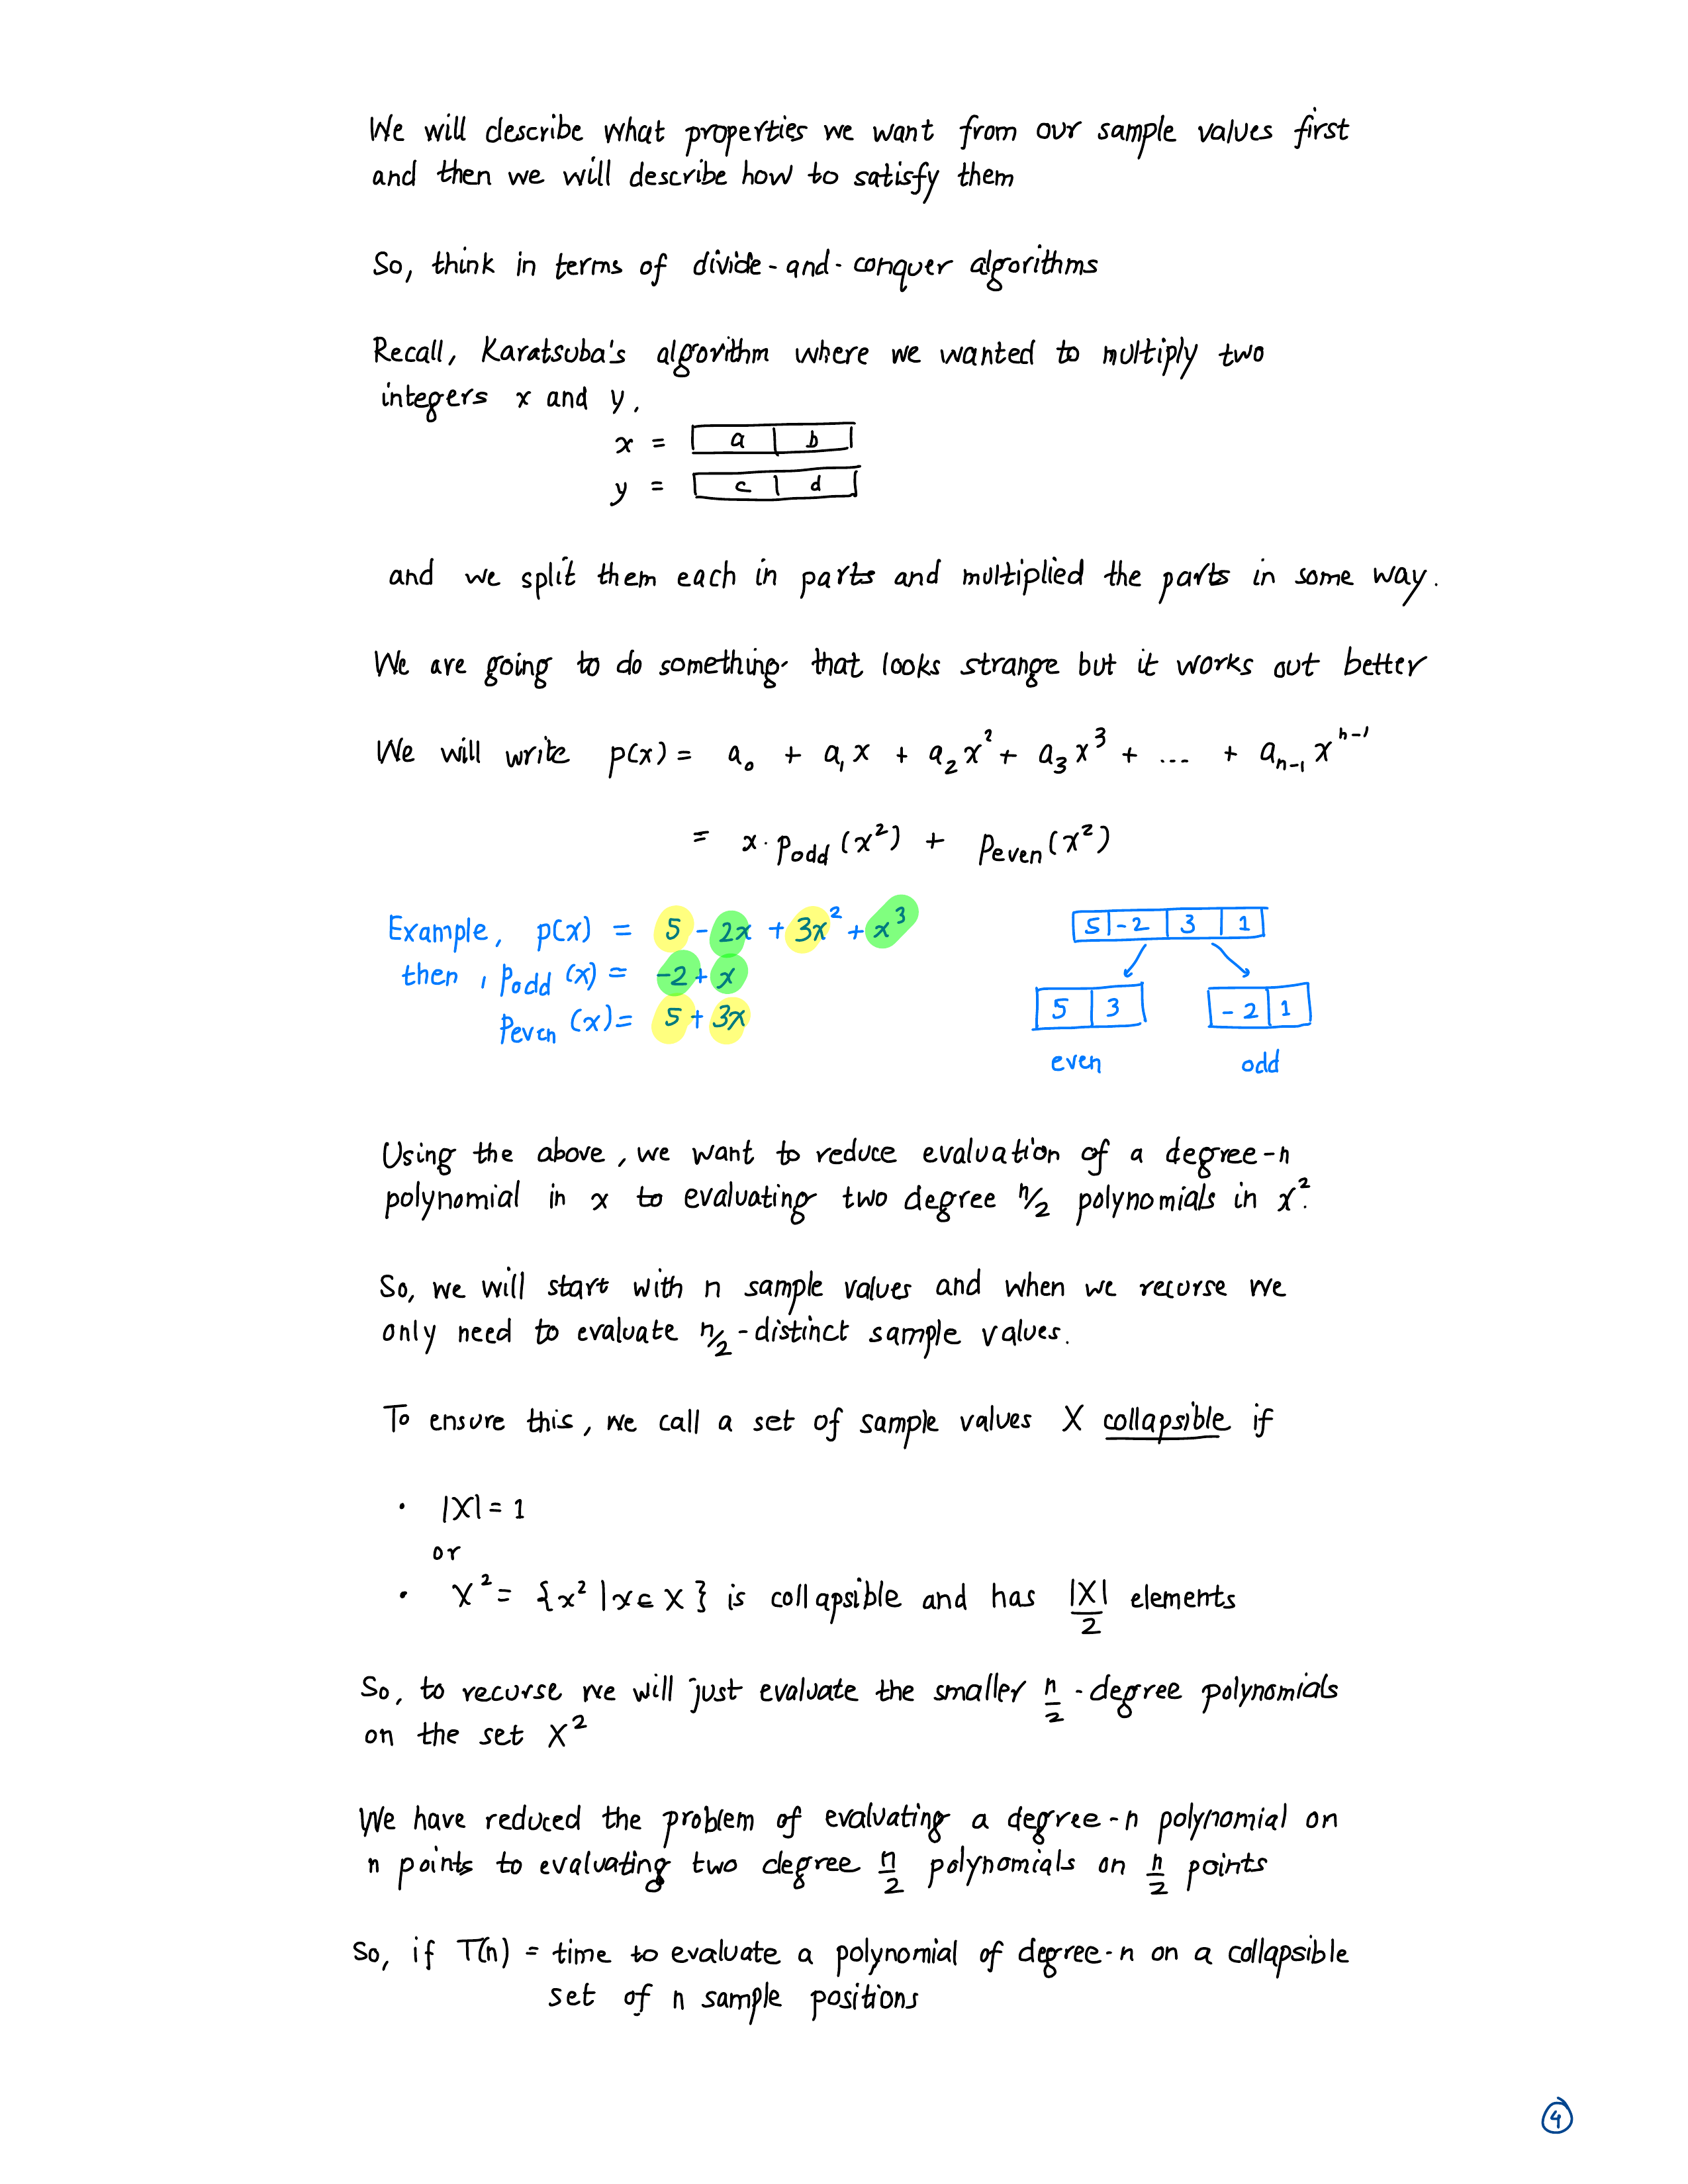 We will describe what properties we want from our sample values first
and then we will describe how to satisfy them
So, think in terms of divide-and-conquer algorithms
Recall, Karatsuba's algorithm where we wanted to multiply two
integers x and y,
x = a b
y = c d
and we split them each in parts and multiplied the parts in some way.
We are going to do something that looks strange but it works out better
We will write p(x) = a₀ + a₁x + a₂x² + a₃x³ + ... + aₙ₋₁xⁿ⁻¹
= x · p_odd(x²) + p_even(x²)
Example, p(x) = 5 - 2x + 3x² + x³
then, p_odd(x) = -2 + x
p_even(x) = 5 + 3x
5 -2 3 1
5 3 -2 1
even odd
Using the above, we want to reduce evaluation of a degree-n
polynomial in x to evaluating two degree n/2 polynomials in x².
So, we will start with n sample values and when we recurse we
only need to evaluate n/2-distinct sample values.
To ensure this, we call a set of sample values X collapsible if
• |X| = 1
or
• X² = {x² | x ∈ X} is collapsible and has |X|/2 elements
So, to recurse we will just evaluate the smaller n/2-degree polynomials
on the set X²
We have reduced the problem of evaluating a degree-n polynomial on
n points to evaluating two degree n/2 polynomials on n/2 points
So, if T(n) = time to evaluate a polynomial of degree-n on a collapsible
set of n sample positions
4